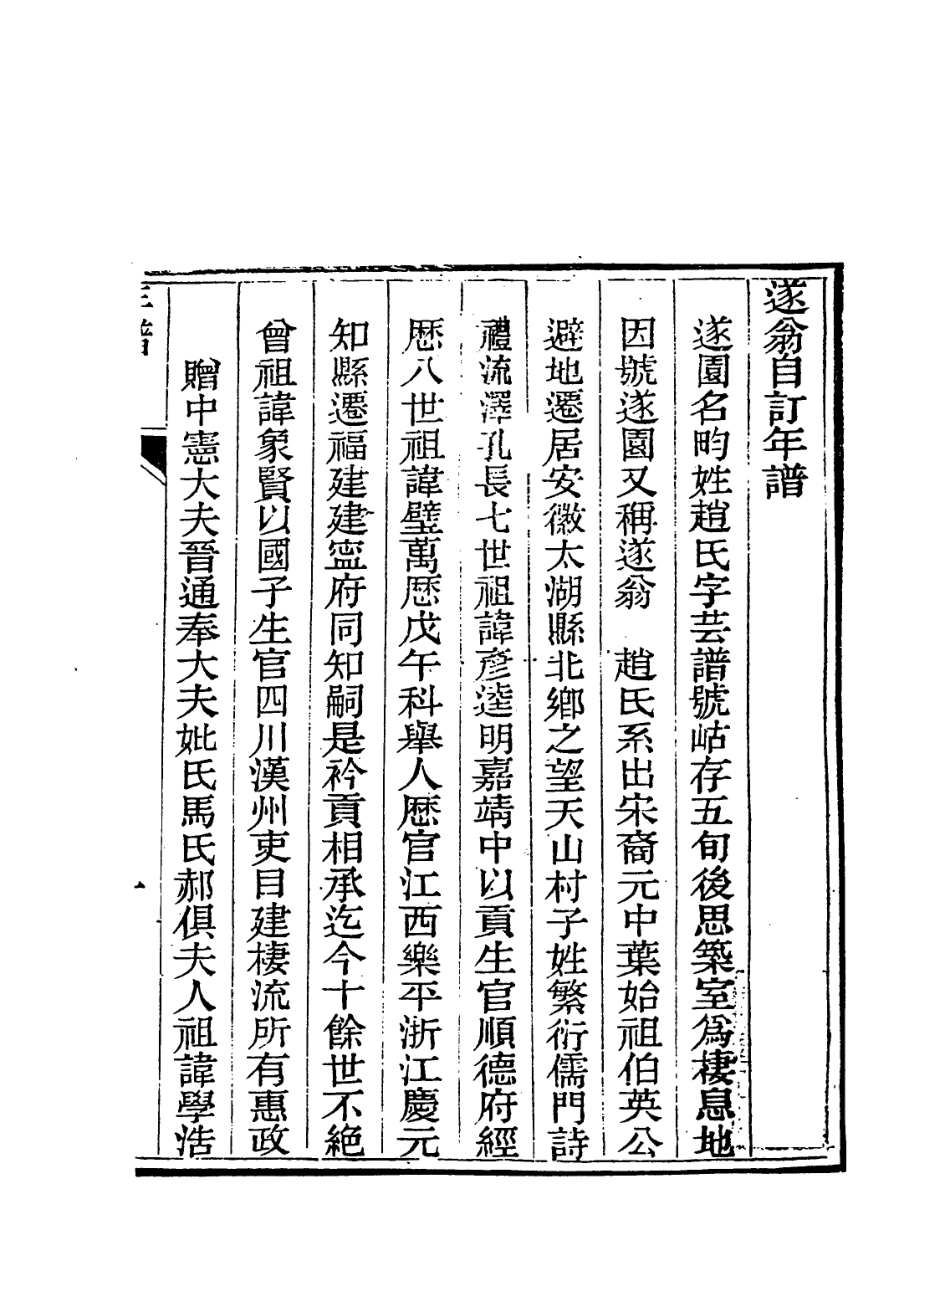 遂翁自訂年譜
遂園名畇姓趙氏字芸譜號岵存五旬後思築室爲棲息地
因號遂園又稱遂翁　趙氏系出宋裔元中葉始祖伯英公
避地遷居安徽太湖縣北鄉之望天山村子姓繁衍儒門詩
禮流澤孔長七世祖諱彥逵明嘉靖中以貢生官順德府經
歷八世祖諱璧萬歷戊午科舉人歷官江西樂平浙江慶元
知縣遷福建建寍府同知嗣是衿貢相承迄今十餘世不絕
曾祖諱象賢以國子生官四川漢州吏目建棲流所有惠政
贈中憲大夫晉通奉大夫妣氏馬氏郝俱夫人祖諱學浩
年譜
一